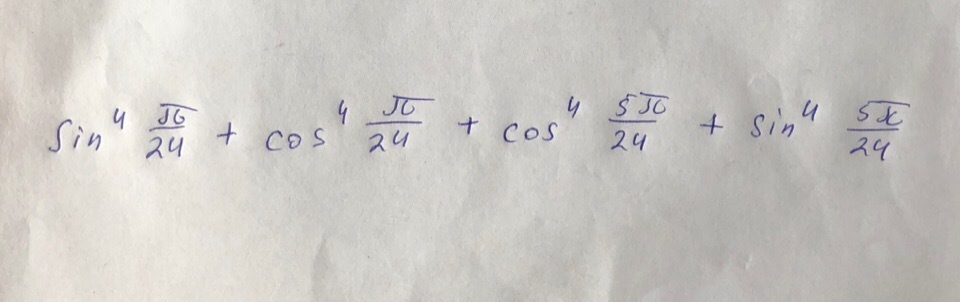 sin⁴ π/24 + cos⁴ π/24 + cos⁴ 5π/24 + sin⁴ 5π/24